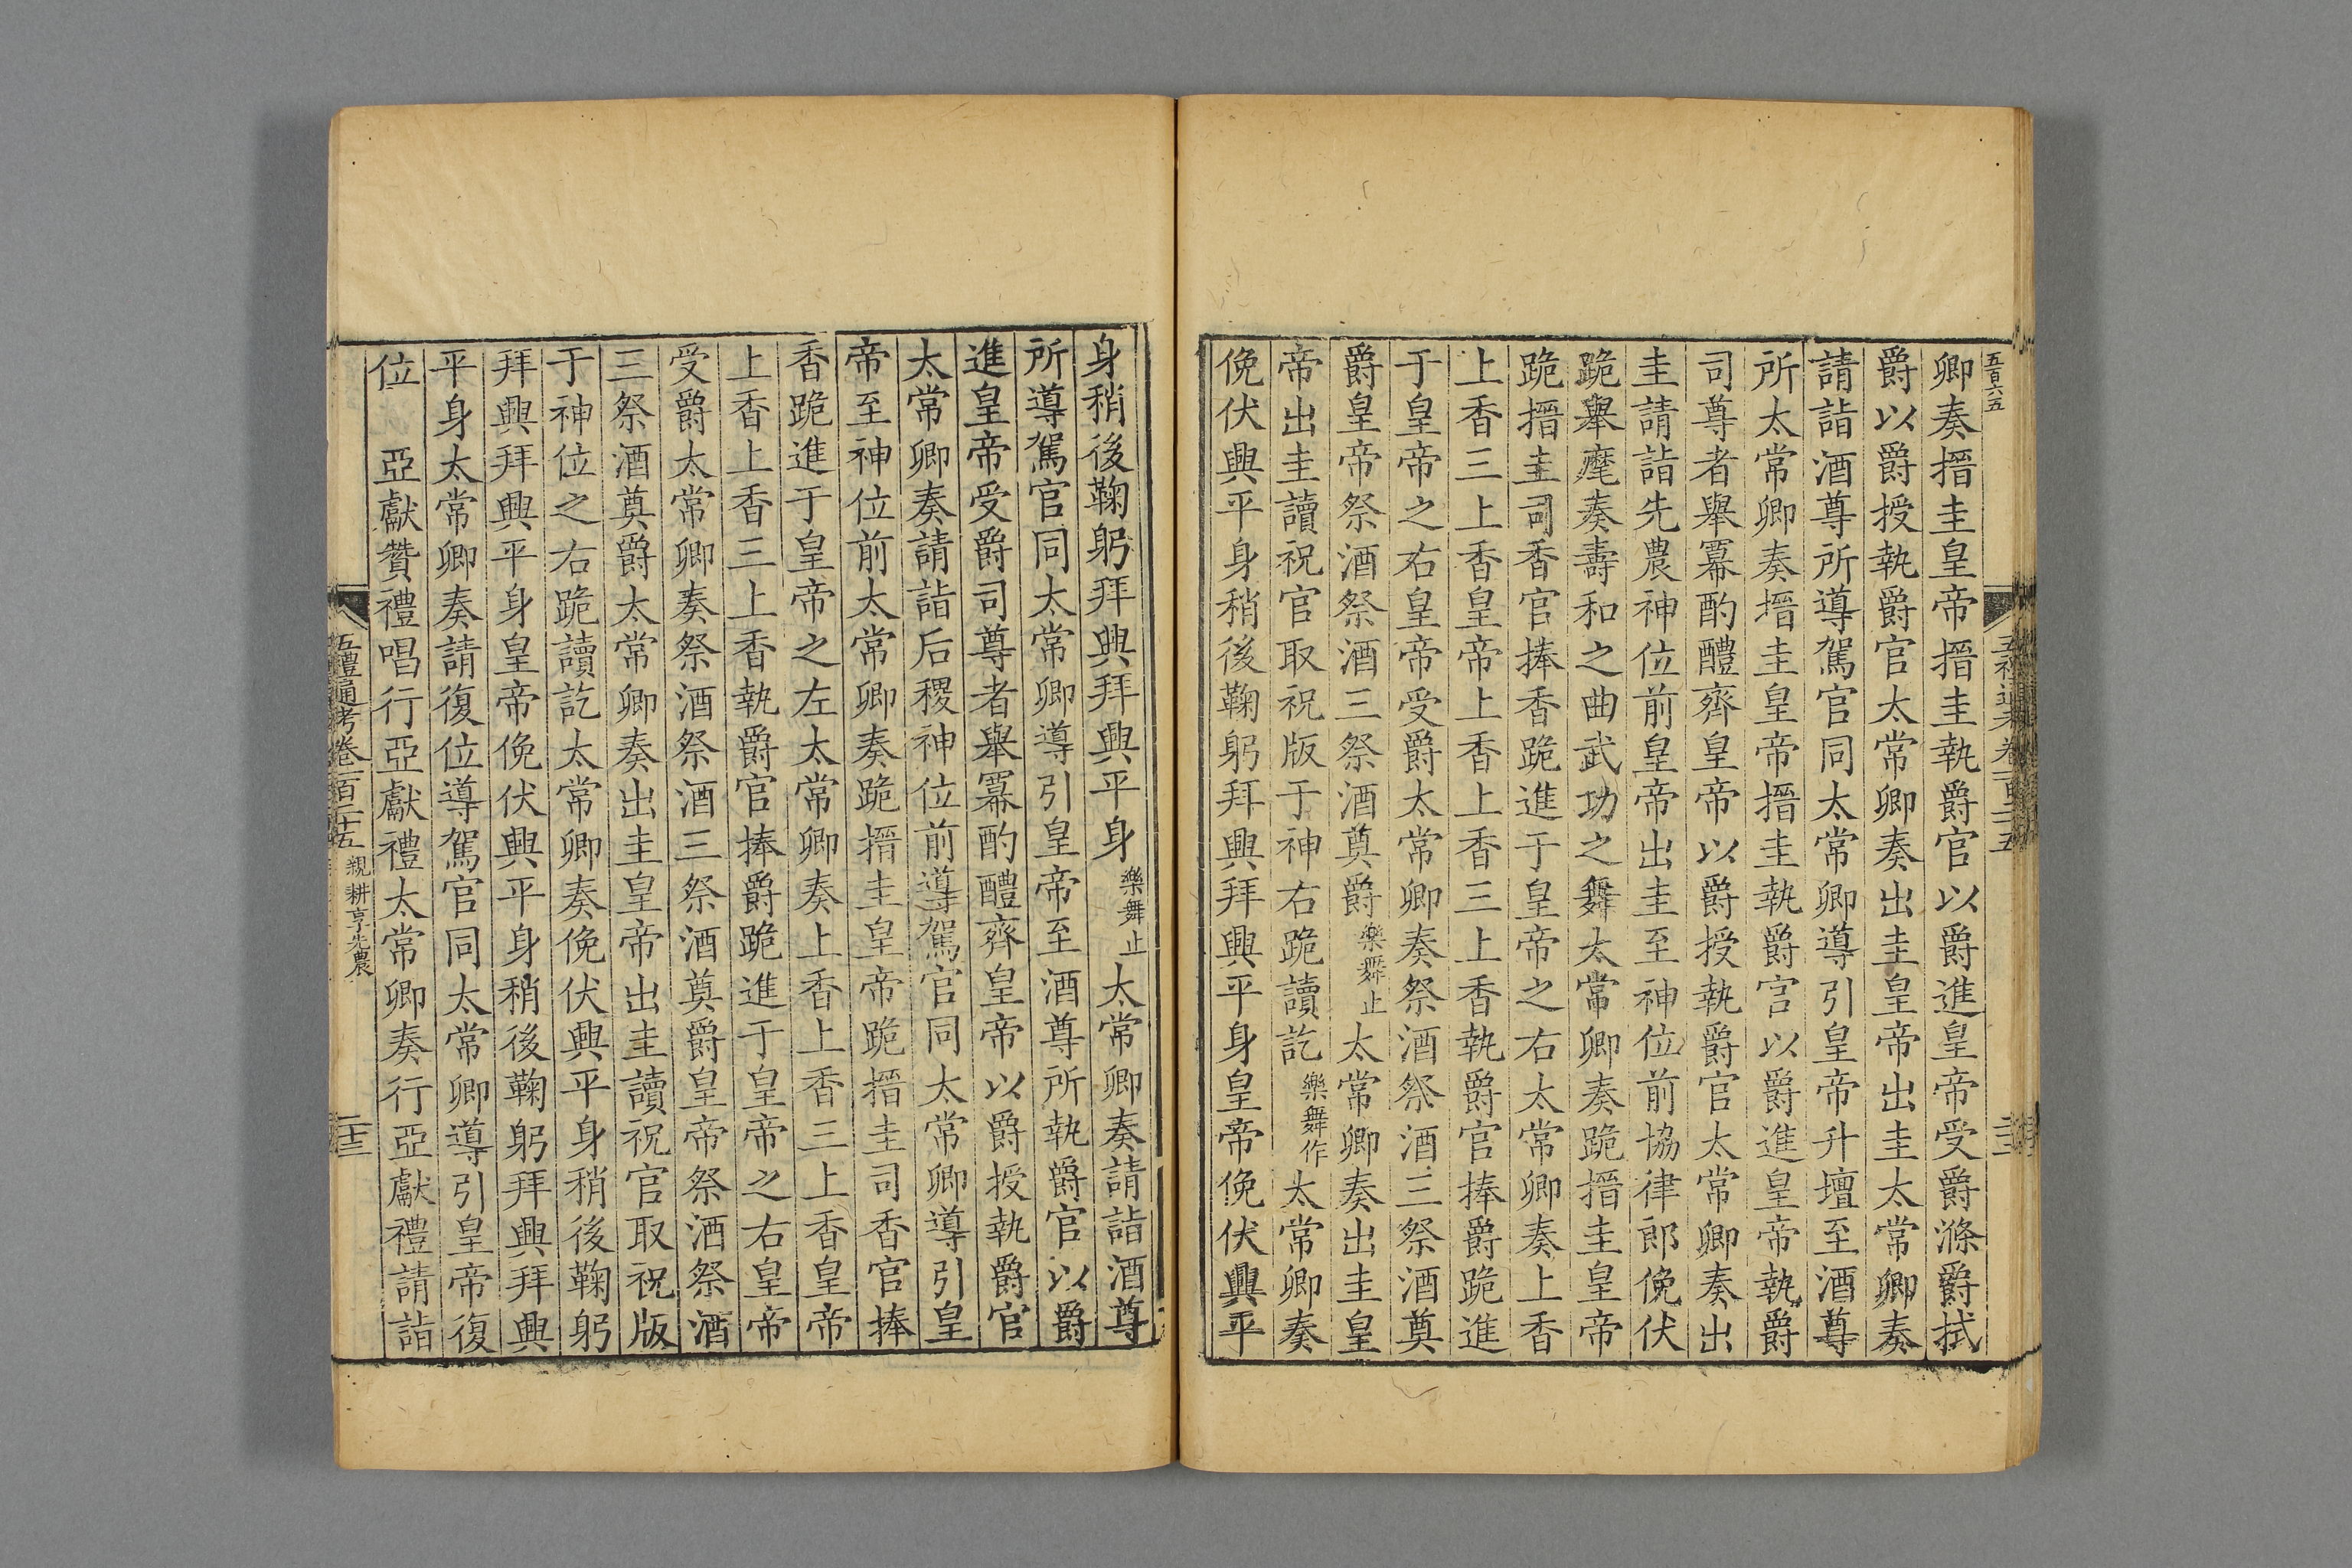 五百六五
卿奏搢圭皇帝搢圭執爵官以爵進皇帝受爵滌爵拭
爵以爵授執爵官太常卿奏出圭皇帝出圭太常卿奏
請詣酒尊所導駕官同太常卿導引皇帝升壇至酒尊
所太常卿奏搢圭皇帝搢圭執爵官以爵進皇帝執爵
司尊者舉冪酌醴齊皇帝以爵授執爵官太常卿奏出
圭請詣先農神位前皇帝出圭至神位前協律郎俛伏
跪舉麾奏壽和之曲武功之舞太常卿奏跪搢圭皇帝
跪搢圭司香官捧香跪進于皇帝之右太常卿奏上香
上香三上香皇帝上香上香三上香執爵官捧爵跪進
于皇帝之右皇帝受爵太常卿奏祭酒祭酒三祭酒奠
爵皇帝祭酒祭酒三祭酒奠爵樂舞止太常卿奏出圭皇
帝出圭讀祝官取祝版于神右跪讀訖樂舞作太常卿奏
俛伏興平身稍後鞠躬拜興拜興平身皇帝俛伏興平
身稍後鞠躬拜興拜興平身樂舞止太常卿奏請詣酒尊
所導駕官同太常卿導引皇帝至酒尊所執爵官以爵
進皇帝受爵司尊者舉冪酌醴齊皇帝以爵授執爵官
太常卿奏請詣后稷神位前導駕官同太常卿導引皇
帝至神位前太常卿奏跪搢圭皇帝跪搢圭司香官捧
香跪進于皇帝之左太常卿奏上香上香三上香皇帝
上香上香三上香執爵官捧爵跪進于皇帝之右皇帝
受爵太常卿奏祭酒祭酒三祭酒奠爵皇帝祭酒祭酒
三祭酒奠爵太常卿奏出圭皇帝出圭讀祝官取祝版
于神位之右跪讀訖太常卿奏俛伏興平身稍後鞠躬
拜興拜興平身皇帝俛伏興平身稍後鞠躬拜興拜興
平身太常卿奏請復位導駕官同太常卿導引皇帝復
位　亞獻贊禮唱行亞獻禮太常卿奏行亞獻禮請詣
五禮通考卷一百二十五 親耕享先農 二十三